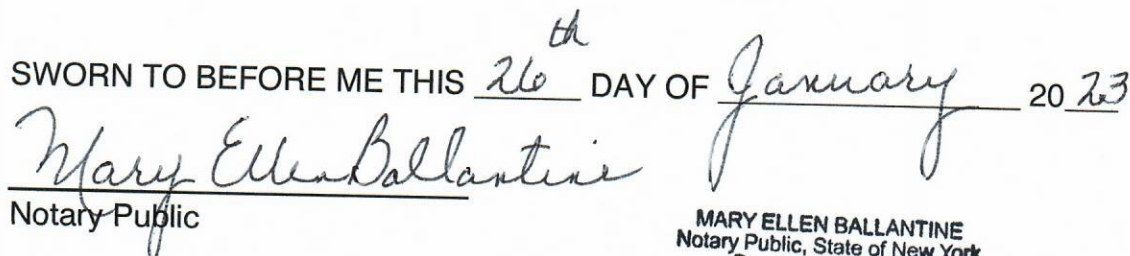 SWORN TO BEFORE ME THIS 26th DAY OF January 2023
Mary Ellen Ballantine
Notary Public
MARY ELLEN BALLANTINE
Notary Public, State of New York